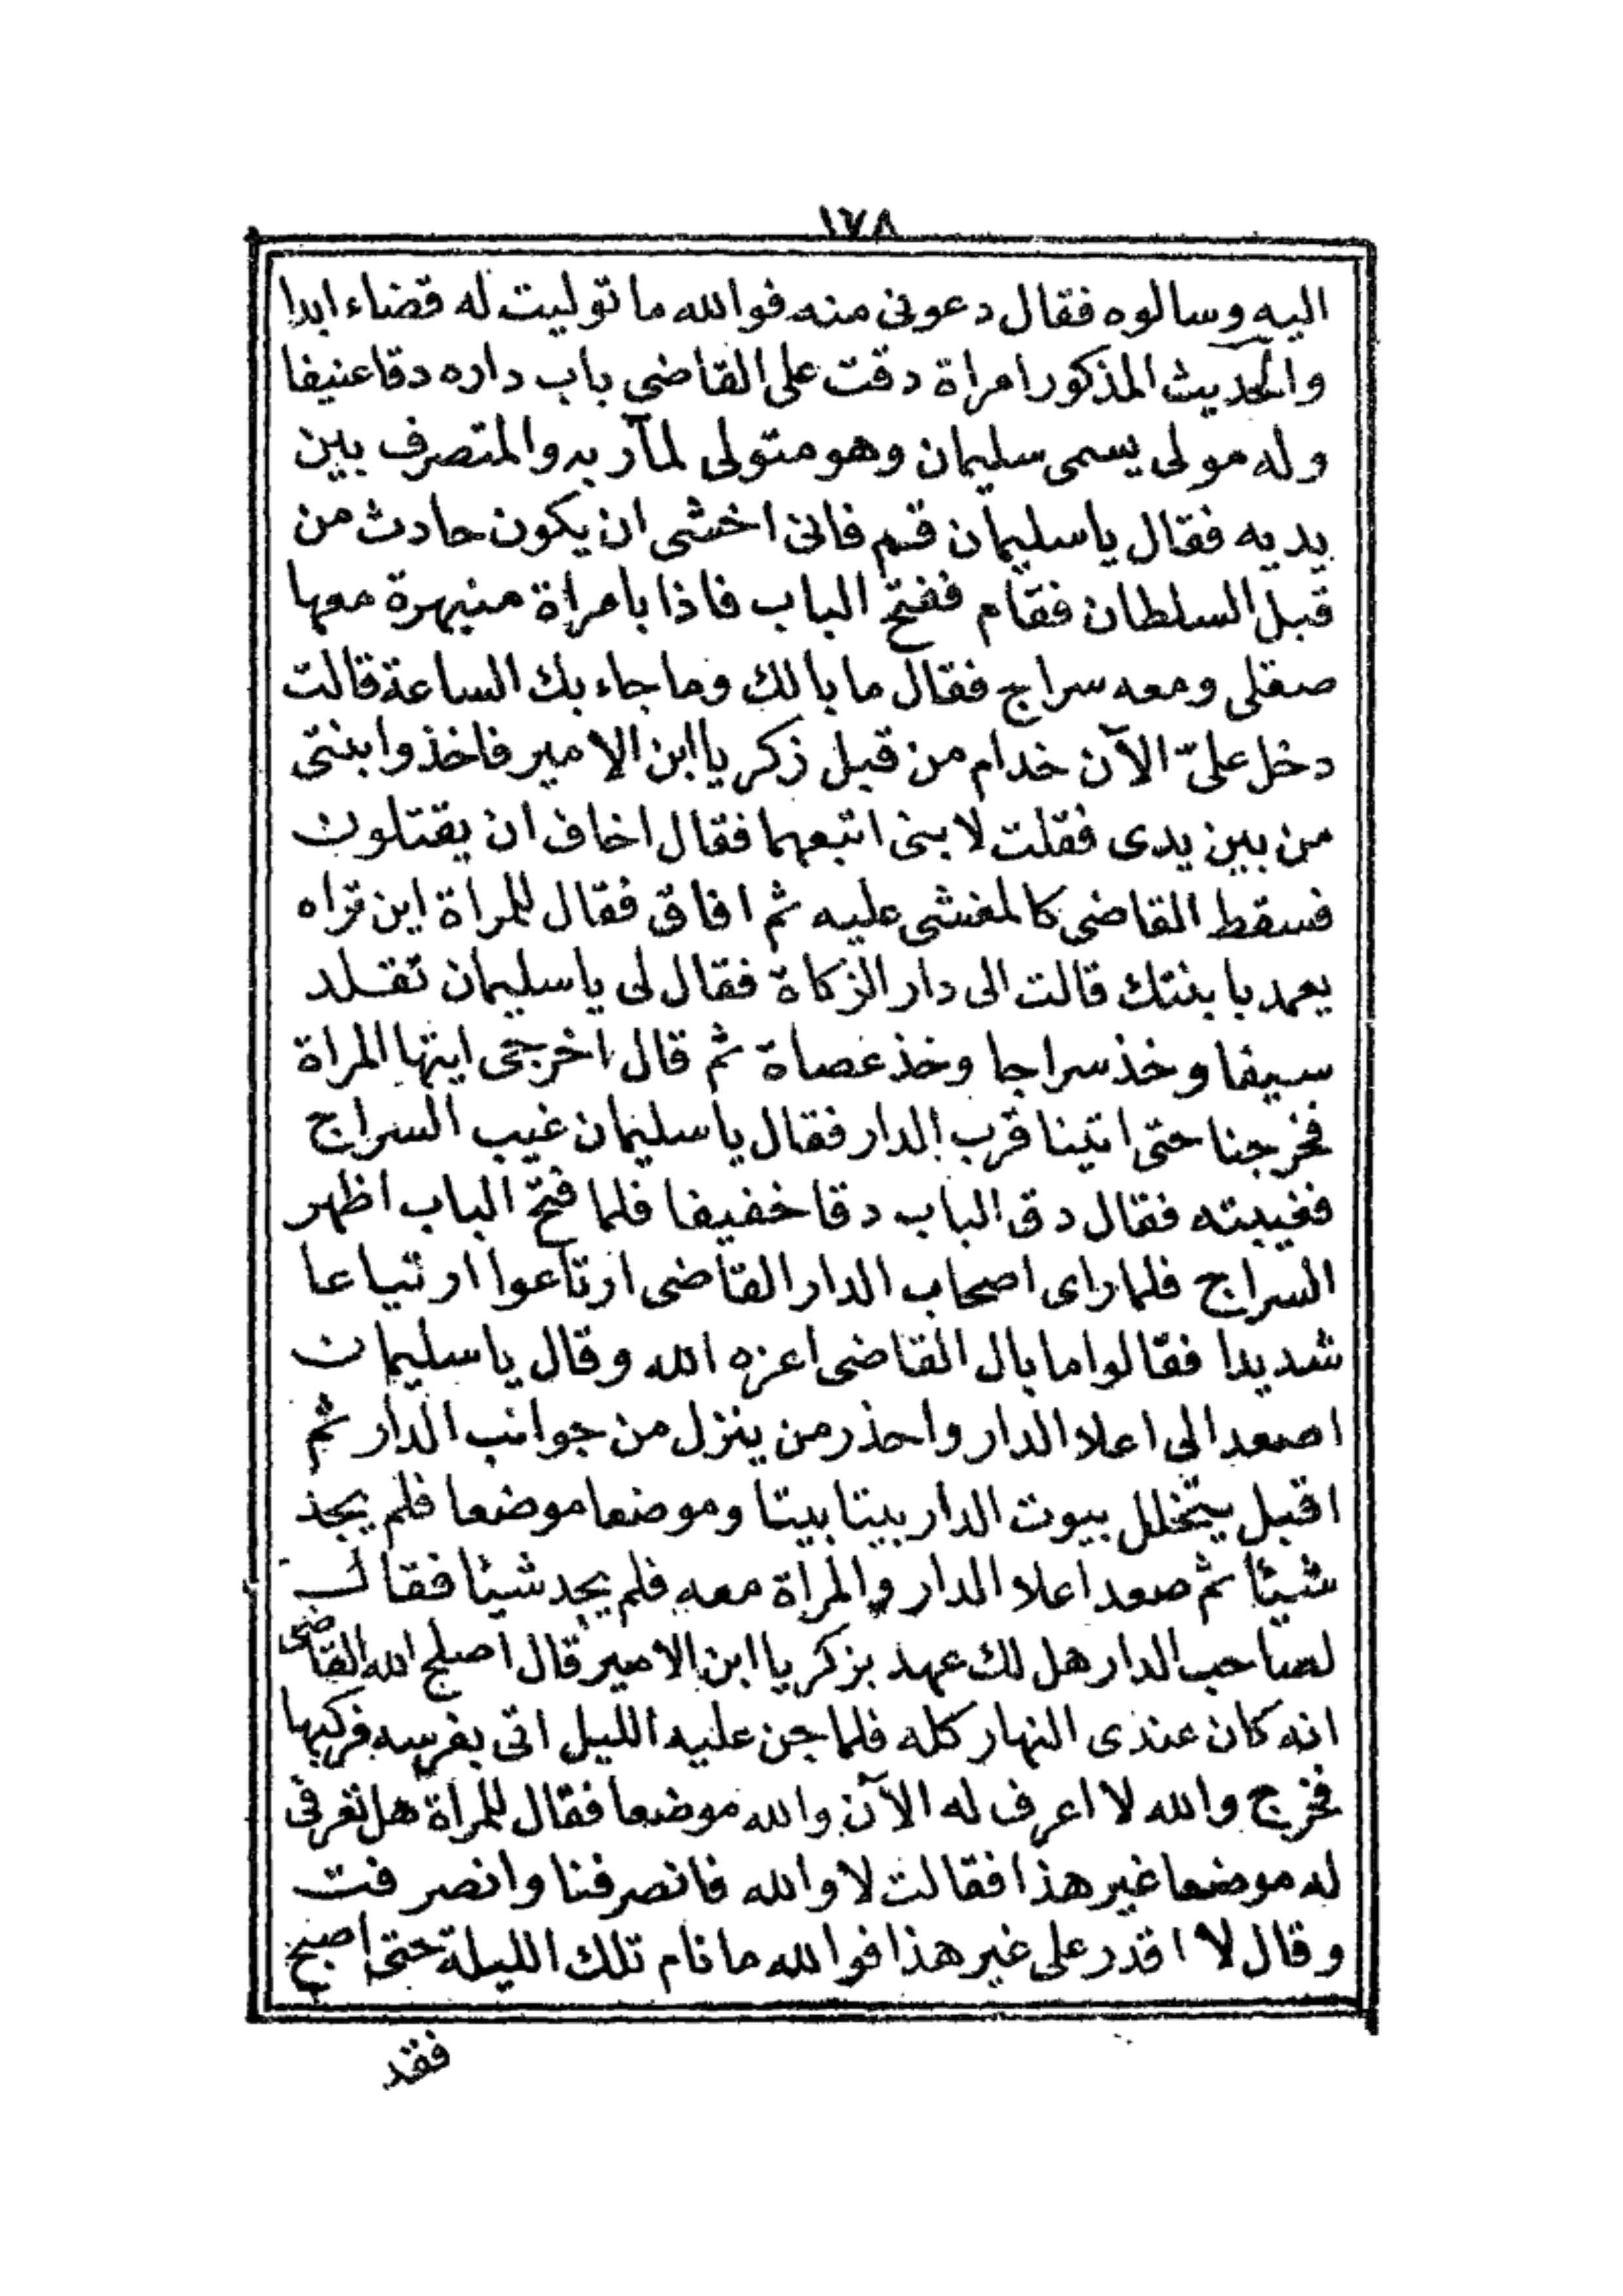 ١٧٨
اليه وسالوه فقال دعونى منه فوالله ما توليت له قضاء ابدا
والحديث المذكور امراة دقت على القاضى باب داره دقا عنيفا
وله مولى يسمى سليمان وهو متولى لمآربه والمتصرف بين
يديه فقال يا سليمان قم فانى اخشى ان يكون حادث من
قبل السلطان فقام ففتح الباب فاذا بامراة منبهرة معها
صقلى ومعه سراج فقال ما بالك وما جاء بك الساعة قالت
دخل علىّ الآن خدام من قبل زكريا ابن الامير فاخذوا ابنتى
من بين يدى فقلت لابنى اتبعهما فقال اخاف ان يقتلون
فسقط القاضى كالمغشى عليه ثم افاق فقال للمراة اين تراه
يعمد بابنتك قالت الى دار الزكاة فقال لى يا سليمان تقلد
سيفا وخذ سراجا وخذ عصاة ثم قال اخرجى ايتها المراة
فخرجنا حتى اتينا قرب الدار فقال يا سليمان غيب السراج
فغيبته فقال دق الباب دقا خفيفا فلما فتح الباب اظهر
السراج فلما راى اصحاب الدار القاضى ارتاعوا ارتياعا
شديدا فقالوا ما بال القاضى اعزه الله وقال يا سليمان
اصعد الى اعلا الدار واحذر من ينزل من جوانب الدار ثم
اقبل يتخلل بيوت الدار بيتا بيتا وموضعا موضعا فلم يجد
شيئا ثم صعد اعلا الدار والمراة معه فلم يجد شيئا فقال
لصاحب الدار هل لك عهد بزكريا ابن الامير قال اصلح الله القاضى
انه كان عندى النهار كله فلما جن عليه الليل اتى بفرسه فركبها
فخرج والله لا اعرف له الآن والله موضعا فقال للمراة هل تعرفى
له موضعا غير هذا فقالت لا والله فانصرفنا وانصرفت
وقال لا اقدر على غير هذا فوالله ما نام تلك الليلة حتى اصبح
فقد